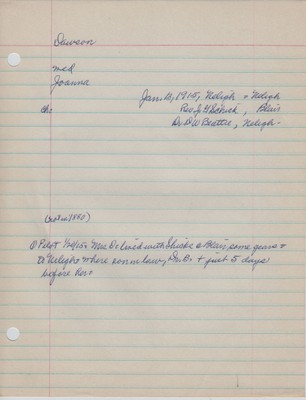 Dawson
md
Joanna
Jan. 13, 1915, Neligh
ch:
Rev. J. G. Schick, Blair
Dr. D W Beattie, Neligh
1840)
Pilot 1/20/15 Mrs D. lived with Shicks @ Blair some years &
to Neligh where son in law, Dr. B. + just 5 days
before her